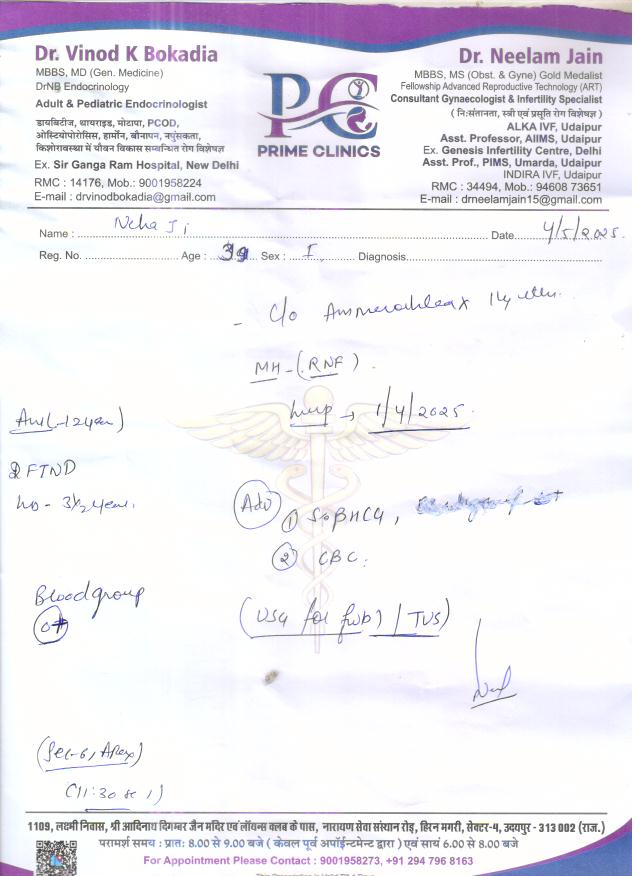 Dr. Vinod K Bokadia
MBBS, MD (Gen. Medicine)
DrNB Endocrinology
Adult & Pediatric Endocrinologist
डायबिटीज, थायराइड, मोटापा, PCOD,
ओस्टियोपोरोसिस, हार्मोन, बौनापन, नपुंसकता,
किशोरावस्था में यौवन विकास सम्बन्धित रोग विशेषज्ञ
Ex. Sir Ganga Ram Hospital, New Delhi
RMC : 14176, Mob.: 9001958224
E-mail : drvinodbokadia@gmail.com
PC
PRIME CLINICS
Dr. Neelam Jain
MBBS, MS (Obst. & Gyne) Gold Medalist
Fellowship Advanced Reproductive Technology (ART)
Consultant Gynaecologist & Infertility Specialist
( नि:संतानता, स्त्री एवं प्रसुति रोग विशेषज्ञ )
ALKA IVF, Udaipur
Asst. Professor, AIIMS, Udaipur
Ex. Genesis Infertility Centre, Delhi
Asst. Prof., PIMS, Umarda, Udaipur
INDIRA IVF, Udaipur
RMC : 34494, Mob.: 94608 73651
E-mail : drneelamjain15@gmail.com
Name : Neha Ji Date 4/5/2025.
Reg. No. Age : 39 Sex : F Diagnosis
- C/o
MH - (RNF).
LMP → 1/4/2025.
FTND
LD - 3½ year.
Adv
① S. βHCG,
② CBC.
Blood group
(USG for fwb) / TVS)
(Sec-6, Apex)
(11:30 se 1)
1109, लक्ष्मी निवास, श्री आदिनाथ दिगम्बर जैन मंदिर एवं लॉयन्स क्लब के पास, नारायण सेवा संस्थान रोड़, हिरन मगरी, सेक्टर-4, उदयपुर - 313 002 (राज.)
परामर्श समय : प्रातः 8.00 से 9.00 बजे ( केवल पूर्व अपॉईन्टमेन्ट द्वारा ) एवं सायं 6.00 से 8.00 बजे
For Appointment Please Contact : 9001958273, +91 294 796 8163